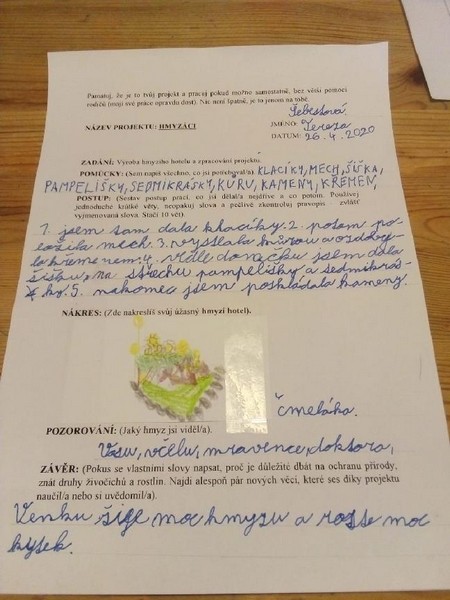 Pamatuj, že je to tvůj projekt a pracuj pokud možno samostatně, bez větší pomoci
rodičů (mají své práce opravdu dost). Nic není špatně, je to jenom na tobě.
Šebestová
NÁZEV PROJEKTU: HMYZÁCI
JMÉNO: Tereza
DATUM: 26.4.2020
ZADÁNÍ: Výroba hmyzího hotelu a zpracování projektu.
POMŮCKY: (Sem napiš všechno, co jsi potřeboval/a) KLACÍKY, MECH, ŠIŠKA,
PAMPELIŠKY, SEDMIKRÁSKY, KŮRU, KAMENY, KŘEMEN,
POSTUP: (Sestav postup prací, co jsi dělal/a nejdříve a co potom. Používej
jednoduché krátké věty, neopakuj slova a pečlivě zkontroluj pravopis – zvlášť
vyjmenovaná slova. Stačí 10 vět).
1. jsem sam dala klacíky. 2. potom po-
ložila mech. 3. vystlala kůrou a ozdoby-
la křemenem. 4. vedle domečku jsem dala
šišku, na střechu pampelišky a sedmikrás-
ky. 5. nakonec jsem poskládala kameny.
NÁKRES: (Zde nakreslíš svůj úžasný hmyzí hotel).
čmeláka.
POZOROVÁNÍ: (Jaký hmyz jsi viděl/a).
Vosu, včelu, mravence, doktora,
ZÁVĚR: (Pokus se vlastními slovy napsat, proč je důležité dbát na ochranu přírody,
znát druhy živočichů a rostlin. Najdi alespoň pár nových věcí, které ses díky projektu
naučil/a nebo si uvědomil/a).
Venku žije moc hmyzu a roste moc
kytek.